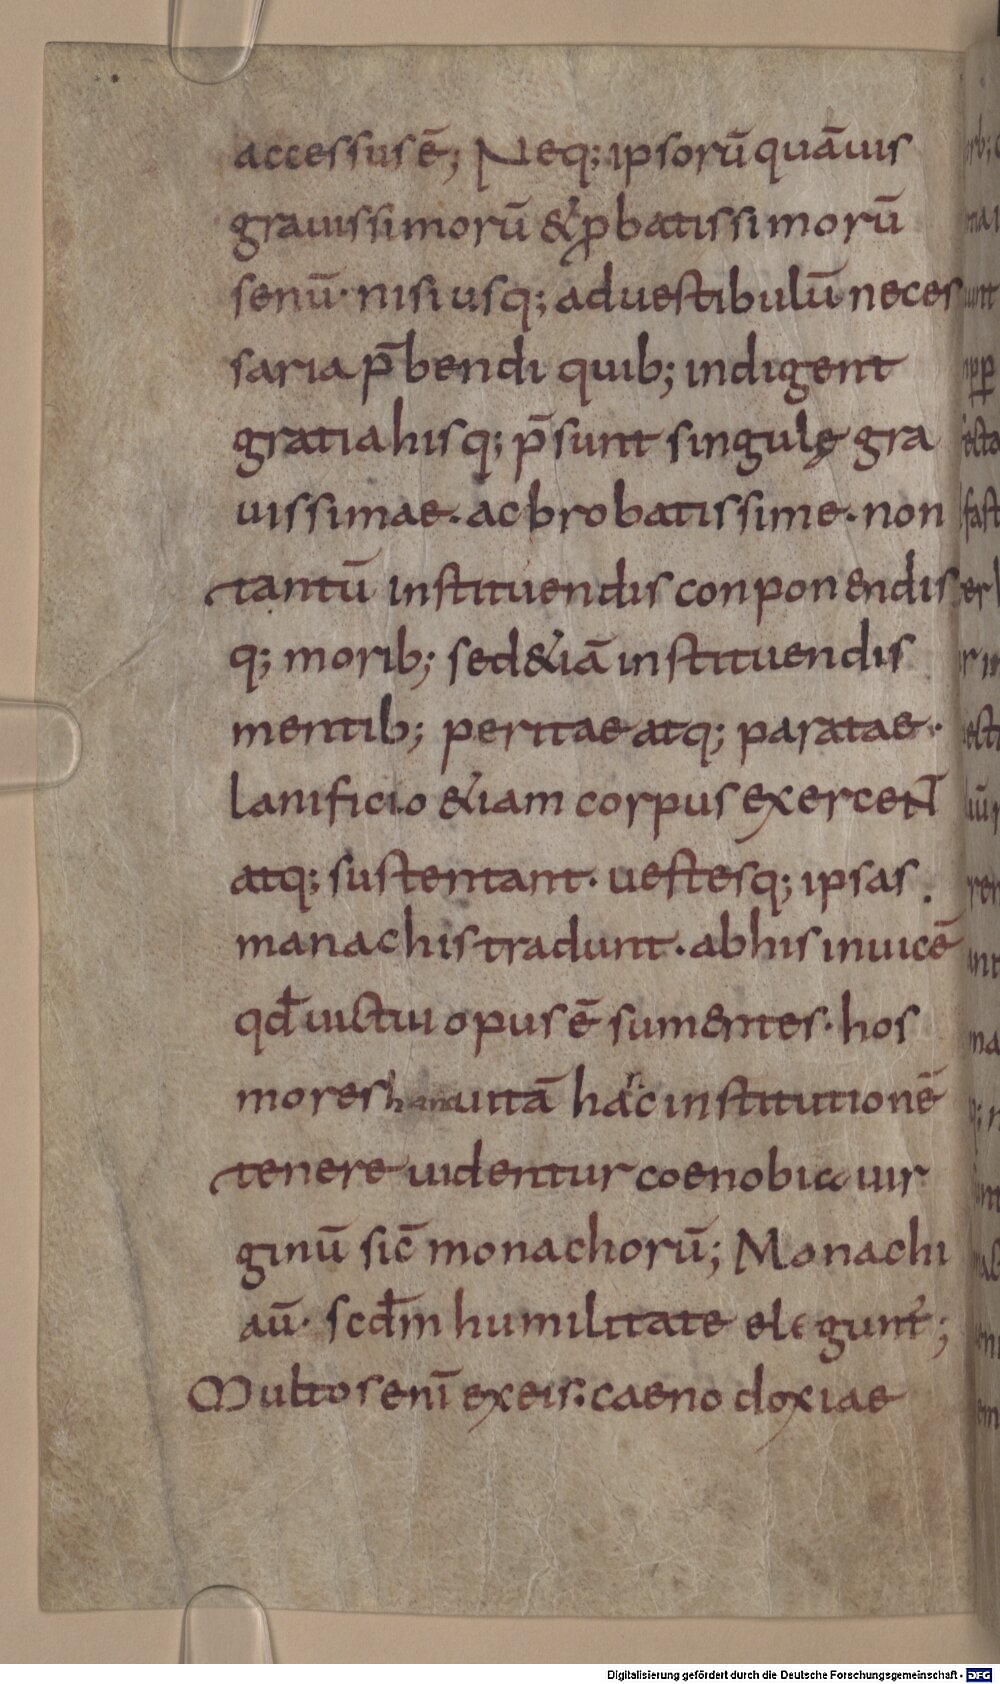 accessus ē; Neq; ipsorū quāuis
grauissimorū & ꝓbatissimorū
senū· nisi usq; ad uestibulū neces
saria p̄bendi quib; indigent
gratia hisq; p̄sunt singulę gra
uissimae· ac brobatissime· non
tantū instituendis conponendis
q; morib; sed &iā instituendis
mentib; peritae atq; paratae·
lanificio &iam corpus exercent
atq; sustentant· uestesq; ipsas.
manachis tradunt· ab his inuicē
qđ uictui opus ē sumentes· hos
mores hanc uitā hanc institutionē
tenere uidentur coenobia uir
ginū sic̄ monachorū; Monachi
aū· scđm humilitate elegunt;
Multos enī ex eis· caenodoxiae
Digitalisierung gefördert durch die Deutsche Forschungsgemeinschaft - DFG